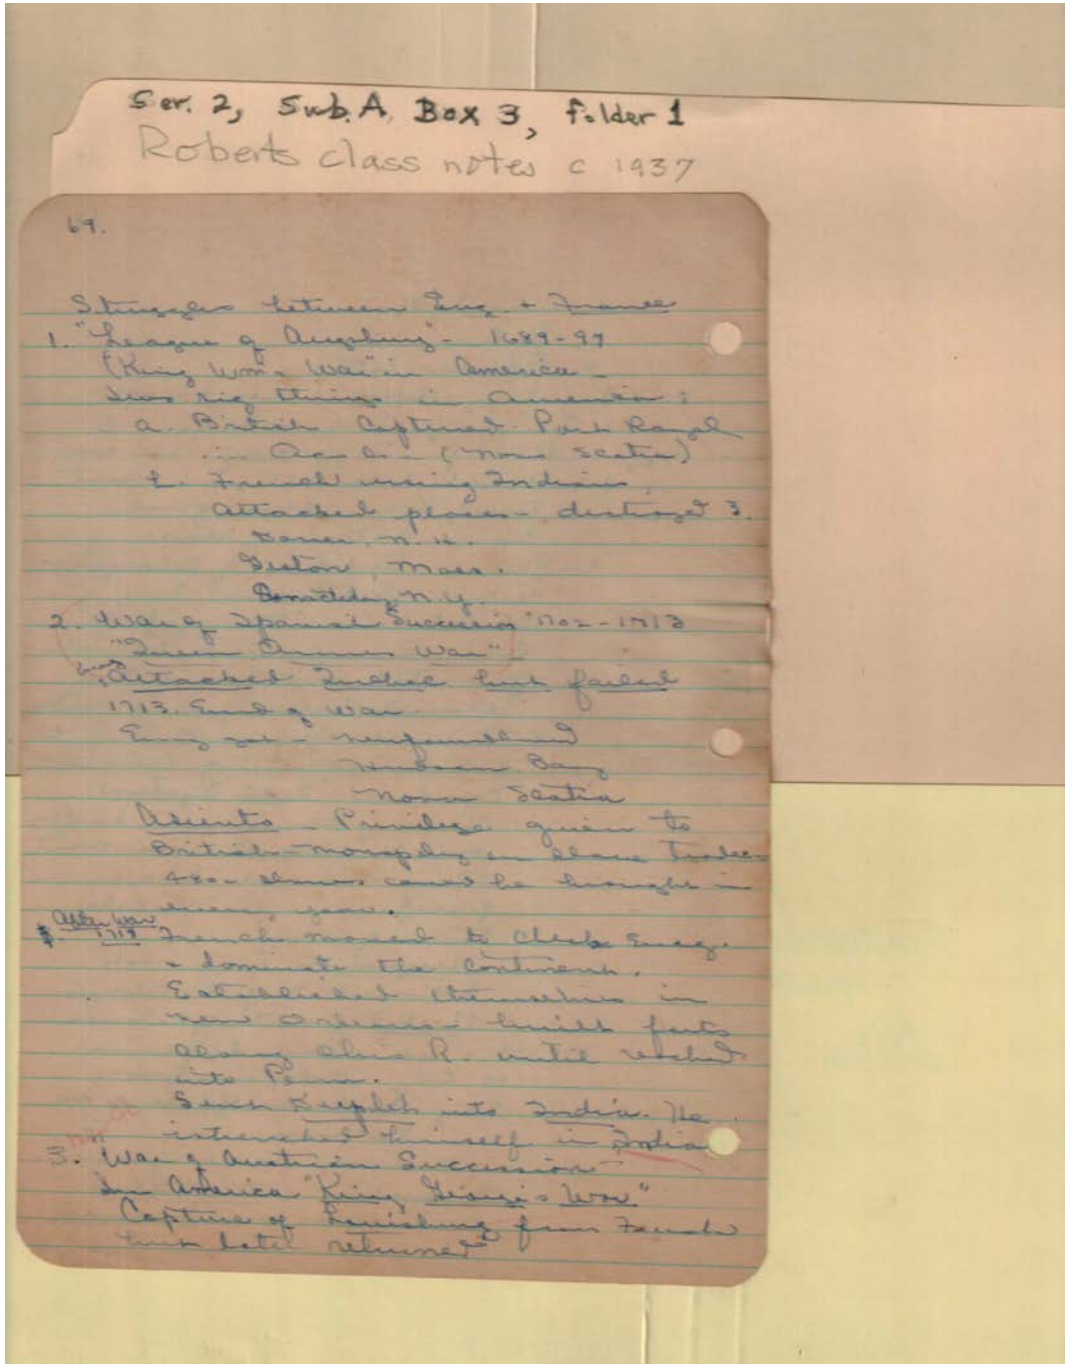 Ser. 2, Sub.A, Box 3, folder 1
Roberts class notes c 1937
69.
Struggles between Eng. + France
1. "League of Augsburg" - 1689-97
(King Wm's War" in America -
Two big things in America:
a. British Captured Port Royal
in Acadia (Nova Scotia)
b. French using Indians,
attacked places - destroyed 3.
Dover, N.H.
Groton, Mass.
N.Y.
2. War of Spanish Succession 1702-1713
"Queen Annes War"
Attacked Quebec but failed
1713. End of war.
Eng got - Newfoundland
Hudson Bay
Nova Scotia
Asiento - Privilege given to
British - monoply on slave trade -
4800 slaves could be brought in
every year.
After War
1713 French moved to check Eng.
+ dominate the continent.
Established themselves in
New Orleans - built forts
along Ohio R. until reached
into Penn.
Sent Dupleix into India. He
himself in India
3. War of Austrian Succession -
In America "King George's War"
Capture of Louisburg from French
but later returned